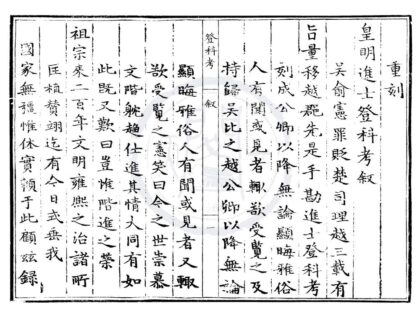 重刻
皇明進士登科考叙
吳俞憲罪貶楚司理越三載有
旨量移越郡先是手勘進士登科考
刻成公卿以降無論顯晦雅俗
人有聞或見者輙欲受覽之及
持歸吳比之越公卿以降無論
登科考 叙
顯晦雅俗人有聞或見者又輙
欲受覽之憲笑曰今之世崇慕
文階躭趍仕進其情大同有如
此既又歎曰豈惟階進之榮
祖宗來二百年文明雍熙之治諸所
匡植賛翊迄有今日式垂我
國家無疆惟休實頼于此顧玆錄